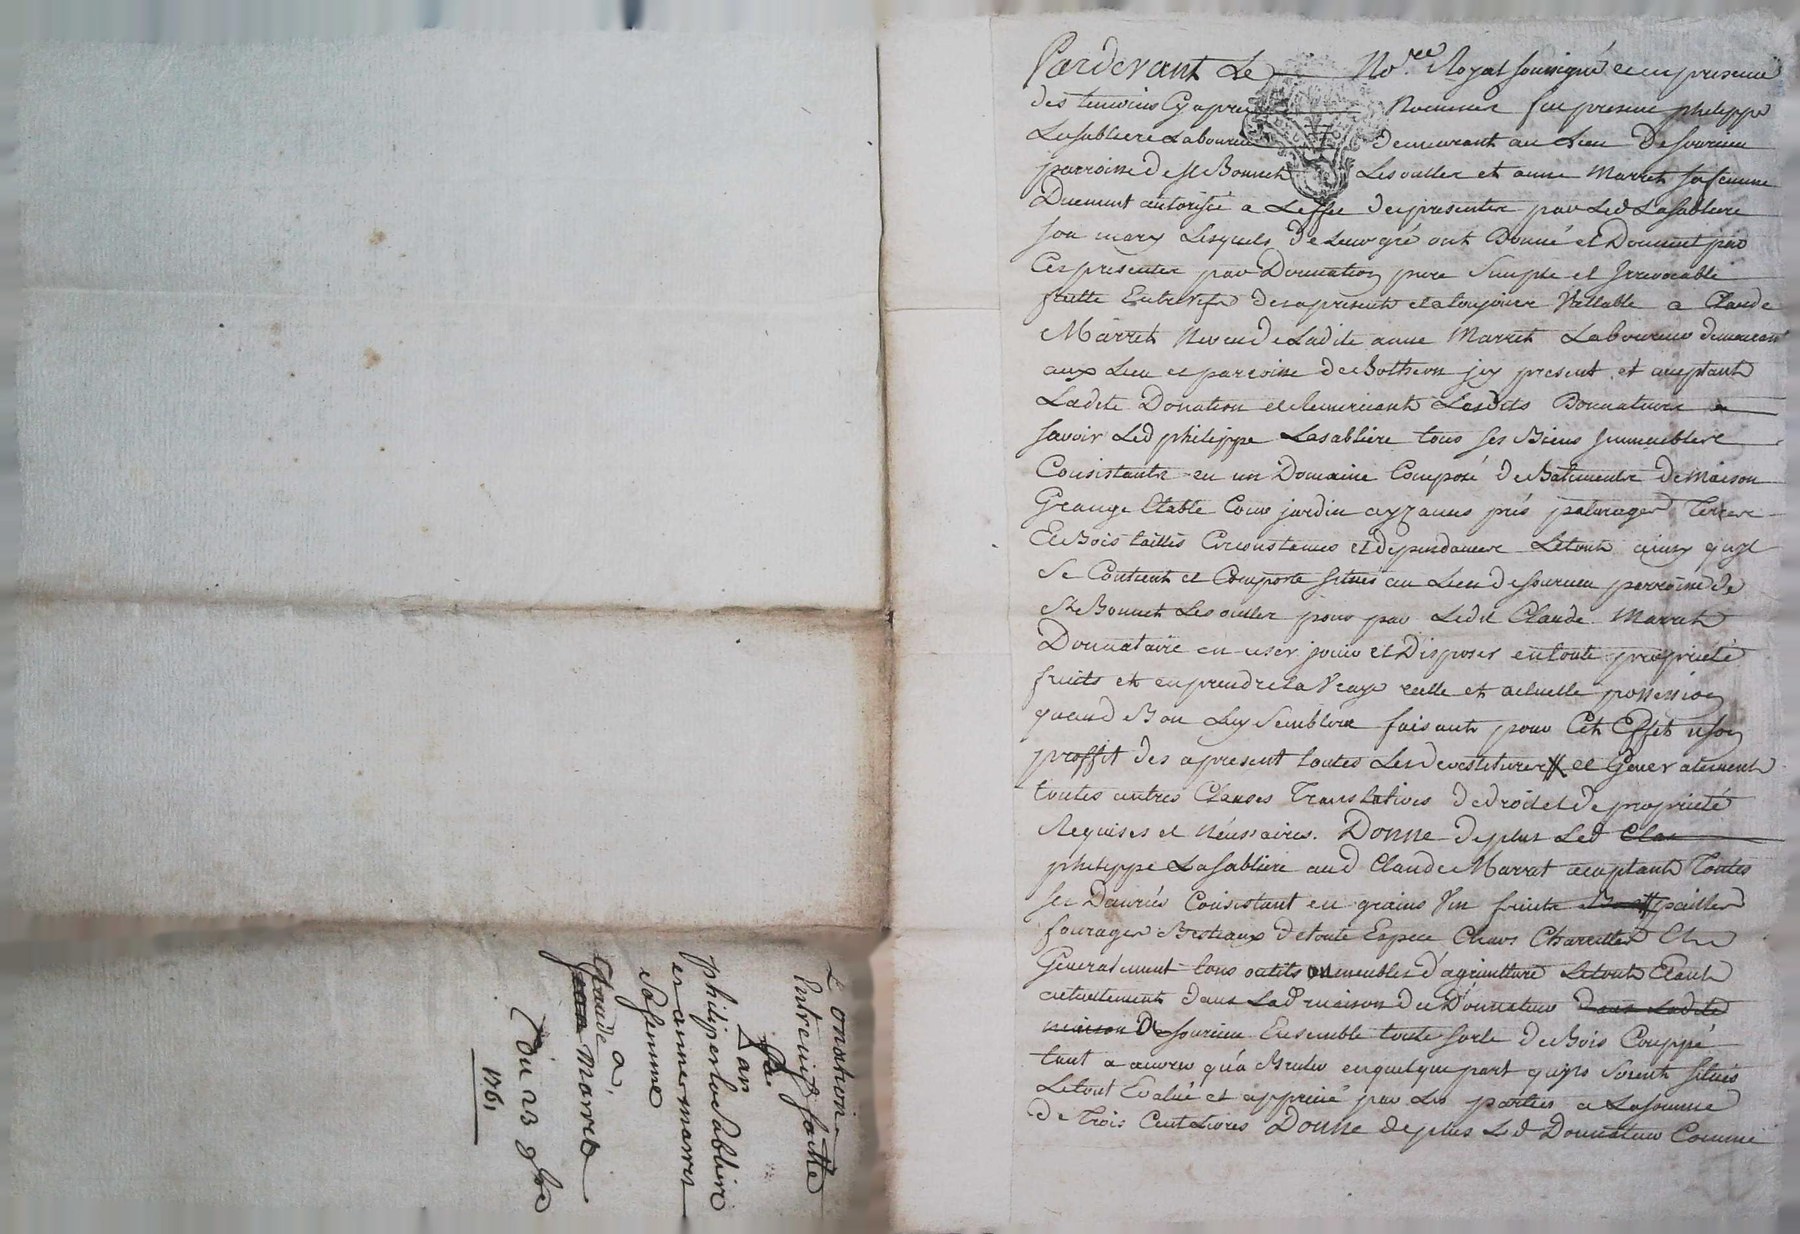 Donnation
Entrevifs faitte
Par
philiper la Sabliere
et anne marret
Sa femme
a
Claude
Jean Marret
du 23 9bre
1761
Pardevant Le No.re Royal soussigné et en presence
des temoins Cy apres Nommes fut presens philippe
Lasabliere Laboureur demeurant au Lieu de sourieu
parroisse de st Bonnet Lesoulle et anne Marret sa femme
Duement autorisée a Leffet des presentes par Led Lasabliere
son mary Lesquels de Leur gré ont Donné et Donnent par
Ces presentes par Donnation pure Simple et Irrevocable
faitte Entrevifs des apresent et a toujours Vallable a Claude
Marret Neveu de Ladite anne Marret Laboureur demeurant
aux Lieu et parroisse de Botheon icy present et acceptant
Ladite Donation et Remerciant Lesdits Donnateurs a
savoir Led philippe Lasabliere tous ses Biens Immeubles
Consistants en un Domaine Composé de Batiments de Maison
Grange Etable Cour jardin ayzances prés paturages Terres
Et Bois taillis Circonstances et dependances Letout ainsy quil
Se Contient et Comporte situés au Lieu de sourieu parroisse de
St Bonnet Lesoulle pour par Ledit Claude Marret
Donnataire en user jouir et Disposer en toute proprieté
fruits et en prendre la Vraye reelle et actuelle possession
quand Bon Luy Semblera faisants pour Cet Effet a son
proffit des apresent toutes Les devestitures // et Generalement
toutes autres Clauses Translatives de droit et de proprieté
Requises et Nécessaires. Donne de plus Led Clau
philippe La Sabliere aud Claude Marret acceptant Toutes
ses Denrées Consistant en grains Vin fruits // pailles
fourages Bestiaux de toute Espece Chars Charettes Et
Generalement tous outils ou meubles d'agriculture Letout Etant
actuellement dans Lad maison du Donnateur dans Ladite
maison De sourieu Ensemble toute sorte de Bois Couppé
tant a oeuvre qu'a Bruler en quelque part quils Soient situés
Letout Evalué et apprecié par Les parties a La somme
de Trois Cent Livres Donne de plus Led Donnateur Comme